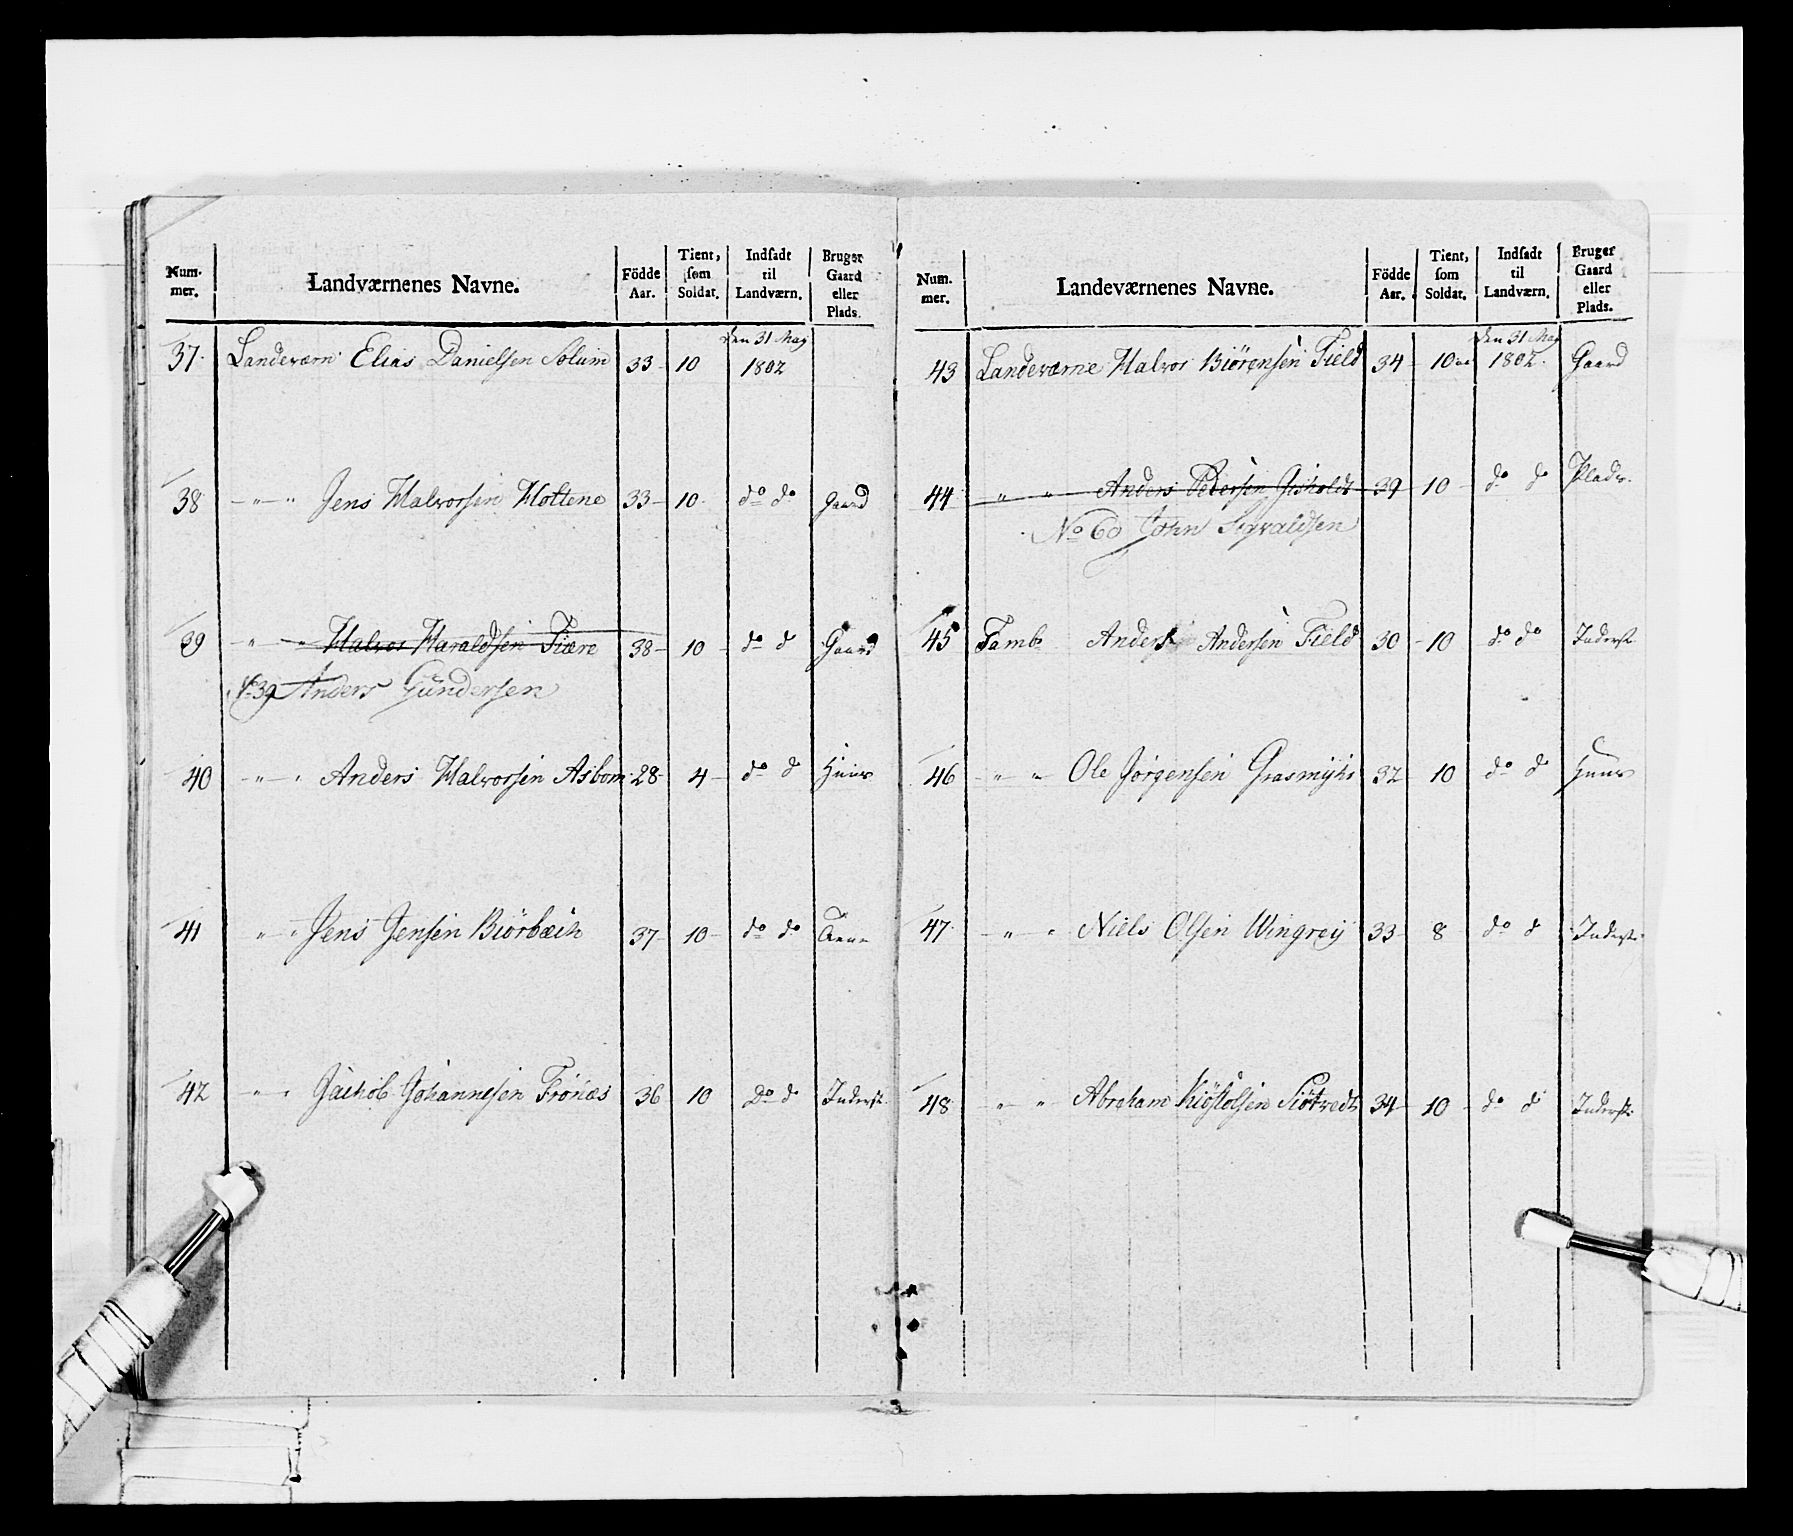 Num-
mer.
Landværnenes Navne.
Födde
Aar.
Tient,
som
Soldat.
Indsadt
til
Landværn.
Bruger
Gaard
eller
Plads.
den 31 May
37. Landeværn Elias Danielsen Solum 33 10 1802
38 — " — " Jens Halvorsen Holtene 33 — 10 do do Gaard
39 — " — " Halvor Haraldsen Fiære 38 — 10 — do d Gaard
No 39 Anders Gundersen
40 " — " Anders Halvorsen Asbom 28 — 4 — do d Huus
41 " — " Jens Jensen Biörbæk 37 — 10 — do do
42 — " — " Jachob Johannesen Frönæs 36 10 Do d Inderst
Num.
mer.
Landeværnenes Navne.
Födde
Aar.
Tient,
som
Soldat.
Indsadt
til
Landværn.
Bruger
Gaard
eller
Plads.
den 31 May
43 Landeværne Halvor Biörensen Field 34 — 10 1802. Gaard
44 " — " Anders Pedersen Gisholdt 39 — 10 — do d Plads.
No 60 John Sigvaldsen
45 Tamb Anders Andersen Field 30 — 10 do do Inderst
46 — " — " Ole Jörgensen Grasmyhr 32 10 do d Huus
47. — " — " Niels Olsen Wingrey 33 — 8 do d Inderst
48 — " — " Abraham Kiöstolsen Siötvedt 34 — 10 — do d Inderst